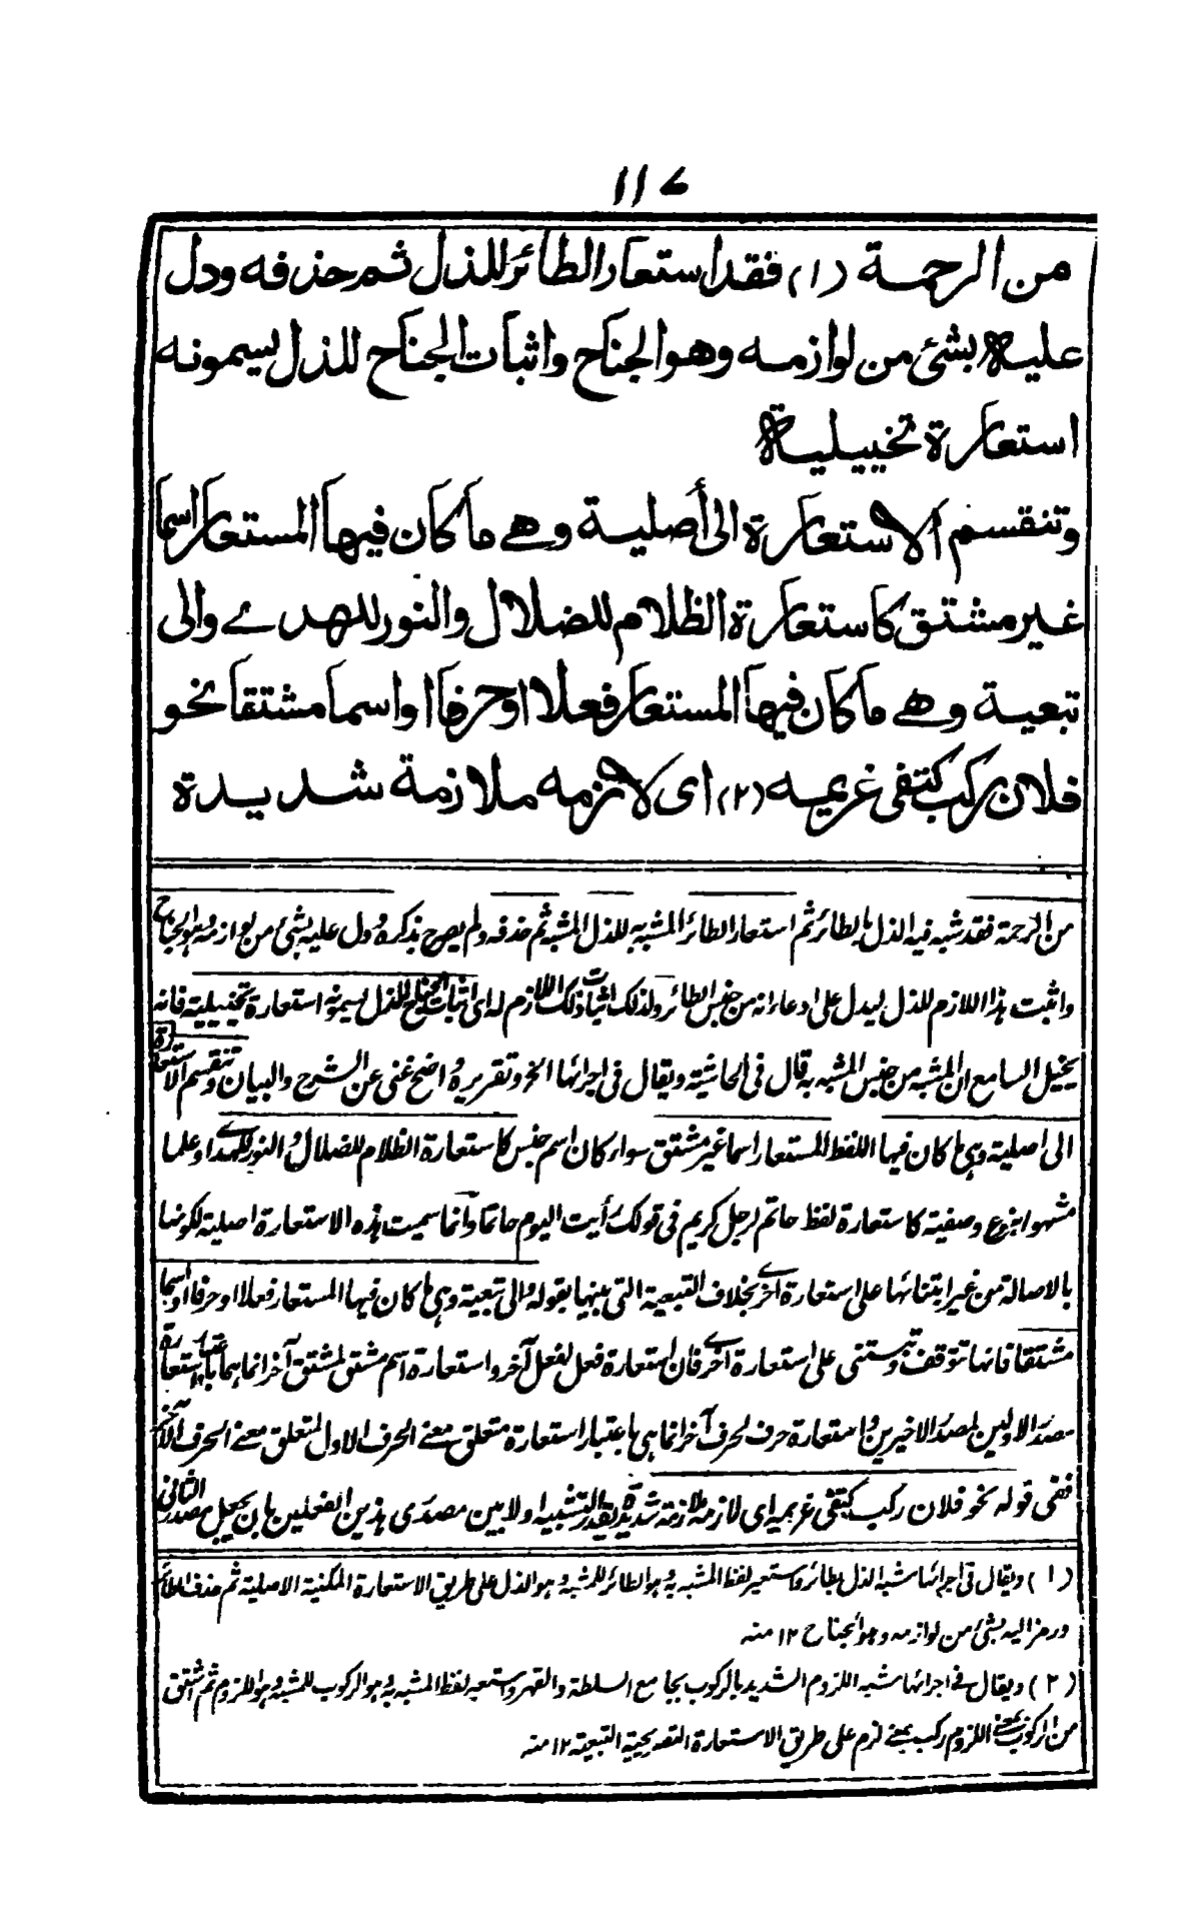 ۱۱۷
من الرحمة (۱) فقد استعار الطائر للذل ثم حذفه ودل
عليه بشئ من لوازمه وهو الجناح واثبات الجناح للذل يسمونه
استعارة تخييلية
وتنقسم الاستعارة الى أصلية وهے ما كان فيها المستعار اسما
غير مشتق كاستعارة الظلام للضلال والنور للهدے والى
تبعية وهے ما كان فيها المستعار فعلا او حرفا او اسما مشتقا نحو
فلان ركب كتفى غريمه (۲) اى لازمه ملازمة شديدة
من الرحمة فقد شبه فيه الذل بالطائر ثم استعار الطائر المشبه به للذل المشبه ثم حذفه ولم يصرح بذكره ودل عليه بشئ من لوازمه وهو الجناح
واثبت هذا اللازم للذل ليدل على ادعاء انه من جنس الطائر ولذلك اثبات ذلك اللازم له اى اثبات الجناح للذل يسمونه استعارة تخييلية فانه
يخيل السامع ان المشبه من جنس المشبه به قال فى الحاشية ويقال فى اجرائها الخ وتقريره واضح غنى عن الشرح والبيان وتنقسم الاستعارة
الى اصلية وهى ما كان فيها اللفظ المستعار اسما غير مشتق سواء كان اسم جنس كاستعارة الظلام للضلال والنور للهدے او علما
مشهورا بنوع وصفية كاستعارة لفظ حاتم لرجل كريم فى قولك رأيت اليوم حاتما وانما سميت هذه الاستعارة اصلية لكونها
بالاصالة من غير ابتنائها على استعارة اخرے بخلاف التبعية التى بينها بقوله والى تبعية وهى ما كان فيها المستعار فعلا او حرفا او اسما
مشتقا فانها تتوقف وتبتنى على استعارة اخرے فان استعارة فعل لفعل آخر واستعارة اسم مشتق لمشتق آخر انما هما باعتبار استعارة
مصدر الاولين لمصدر الاخيرين واستعارة حرف لحرف آخر انما هى باعتبار استعارة متعلق معنے الحرف الاول لمتعلق معنے الحرف الآخر
ففى قوله نحو فلان ركب كتفى غريمه اى لازمه ملازمة شديدة يقدر التشبيه اولا بين مصدرى هذين الفعلين بان يجعل مصدر الثانى
(۱) ويقال فى اجرائها شبه الذل بطائر واستعير لفظ المشبه به وهو الطائر للمشبه وهو الذل على طريق الاستعارة المكنية الاصلية ثم حذف الطائر
ورمز اليه بشئ من لوازمه وهو الجناح ۱۲ منه
(۲) ويقال فے اجرائها شبه اللزوم الشديد بالركوب بجامع السلطة والقهر واستعير لفظ المشبه به وهو الركوب للمشبه وهو اللزوم ثم اشتق
من الركوب بمعنے اللزوم ركب بمعنے لزم على طريق الاستعارة التصريحية التبعية ۱۲ منه